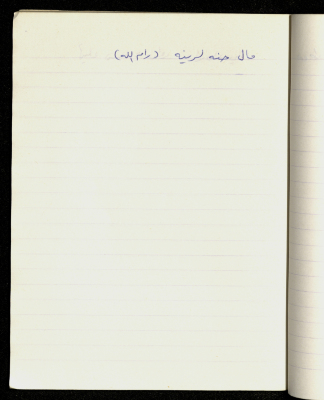 مال حنه لرينه (رام الله)